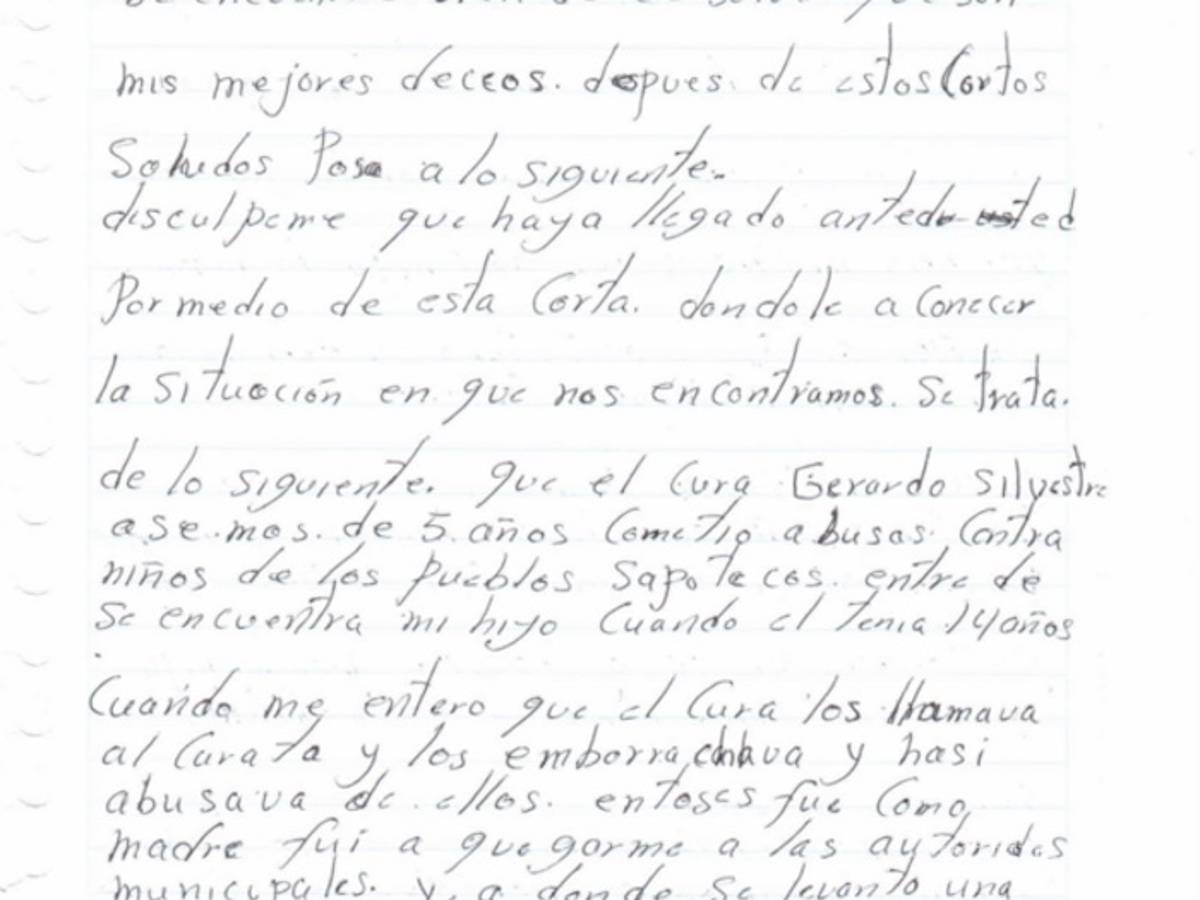 mis mejores deceos. depues. de estos Cortos
Saludos Paso a lo siguiente.
disculpeme que haya llegado ante usted
Por medio de esta Carta. dandole a Conecer
la situación en que nos encontramos. Se trata.
de lo siguiente. que el Cura Gerardo Silvestre
ase. mas. de 5 años Cometio abusos. Contra
niños de los pueblos Sapotecos. entre de
se encuentra mi hijo Cuando el tenia 14 años
Cuando me entero que el Cura los llamava
al Curata y los emborrachava y hasi
abusava de ellos. entoses fue Como
madre fui a quegarme a las autorides
municipales. y a donde se levanto una